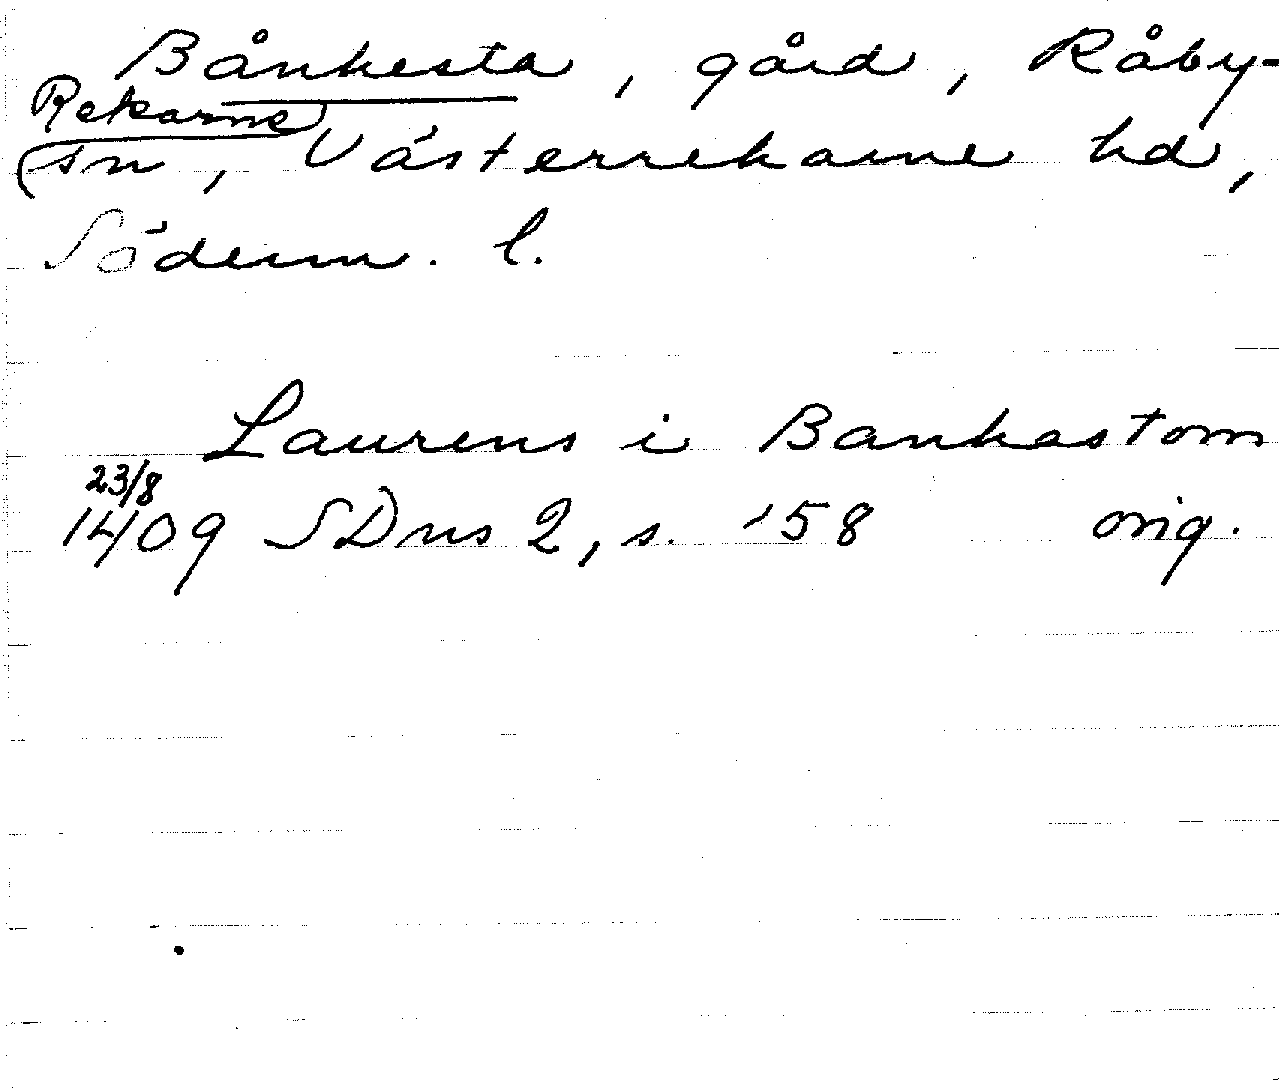 Bånkesta, gård, Råby-
Rekarne
sn, Västerrekarne hd,
Söderm. l.
Laurens i Bankastom
23/8
1409 SDns 2, s. 158 orig.